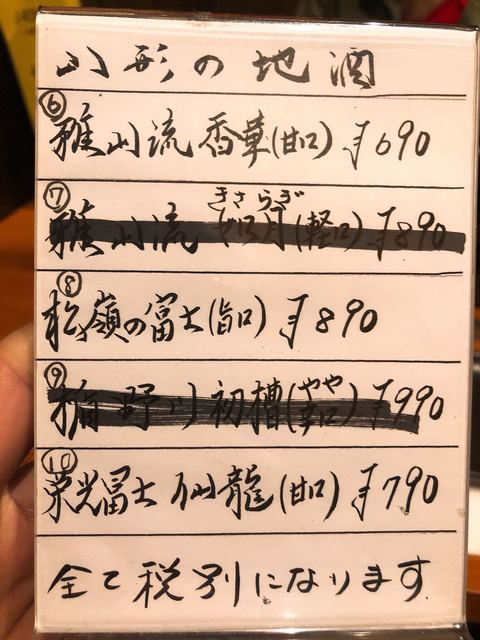 山形の地酒
⑥
雅山流 香華(甘口) ¥690
⑦ きさらぎ
雅山流 如月(軽口) ¥890
⑧
松嶺の富士(旨口) ¥890
⑨
楯野川 初槽(やや辛口) ¥990
⑩
栄光冨士 仙龍(甘口) ¥790
全て税別になります